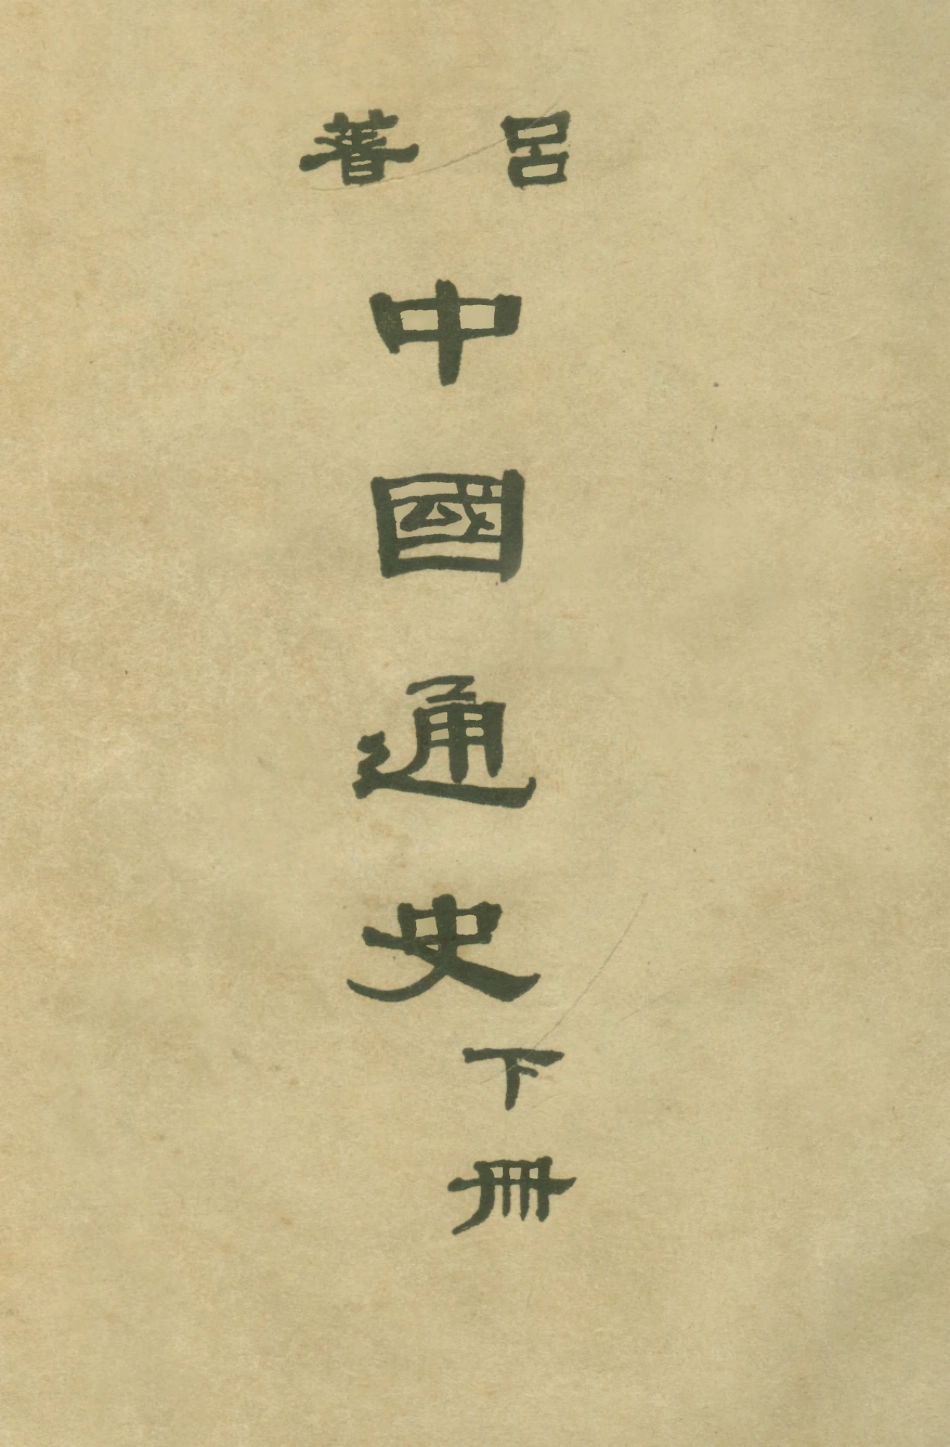 呂著
中國通史
下冊